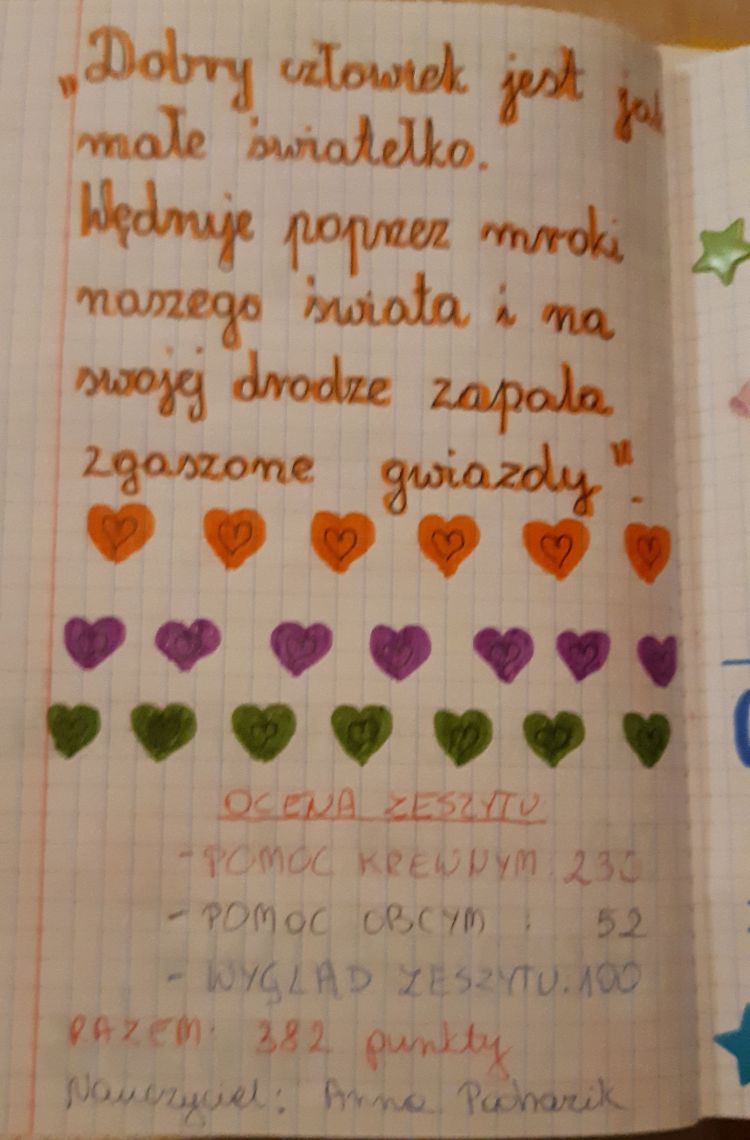 „Dobry człowiek jest jak
małe światełko.
Wędruje poprzez mroki
naszego świata i na
swojej drodze zapala
zgaszone gwiazdy".
OCENA ZESZYTU
- POMOC KREWNYM: 230
- POMOC OBCYM : 52
- WYGLĄD ZESZYTU: 100
RAZEM: 382 punkty
Nauczyciel: Anna